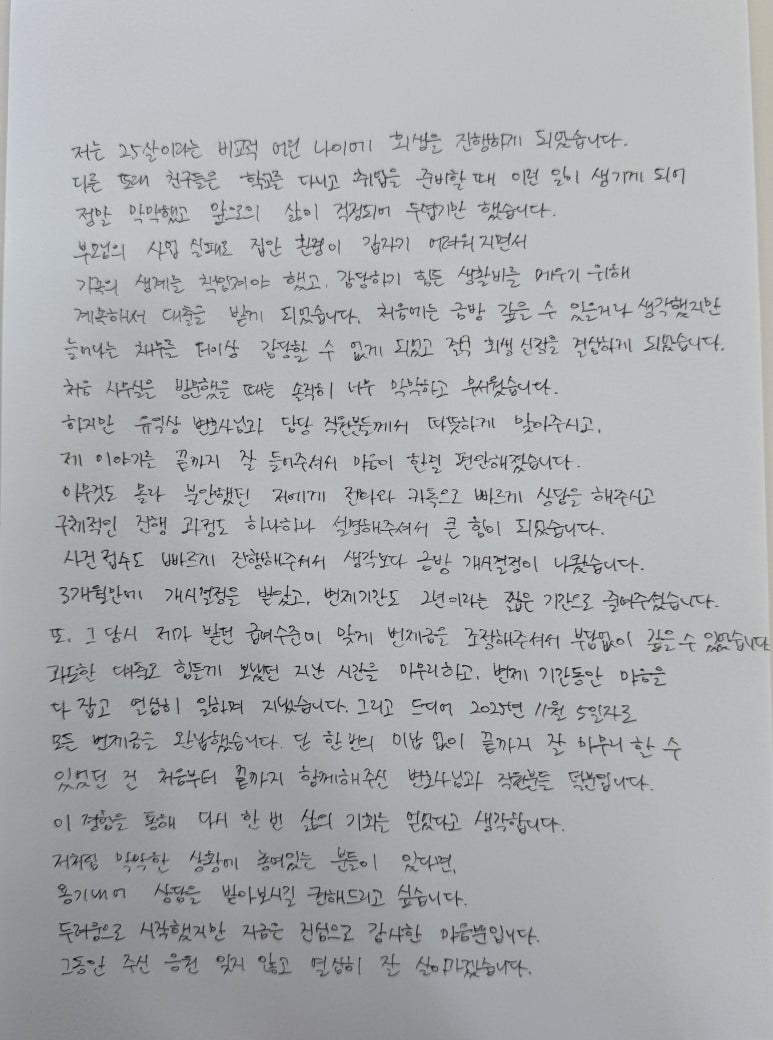 저는 25살이라는 비교적 어린 나이에 회생을 진행하게 되었습니다.
다른 또래 친구들은 학교를 다니고 취업을 준비할 때 이런 일이 생기게 되어
정말 막막했고 앞으로의 삶이 걱정되어 두렵기만 했습니다.
부모님의 사업 실패로 집안 환경이 갑자기 어려워지면서
가족의 생계를 책임져야 했고, 감당하기 힘든 생활비를 메우기 위해
계속해서 대출을 받게 되었습니다. 처음에는 금방 갚을 수 있을거라 생각했지만
늘어나는 채무를 더이상 감당할 수 없게 되었고 결국 회생 신청을 결심하게 되었습니다.
처음 사무실을 방문했을 때는 솔직히 너무 막막하고 무서웠습니다.
하지만 유익상 변호사님과 담당 직원분들께서 따뜻하게 맞아주시고,
제 이야기를 끝까지 잘 들어주셔서 마음이 한결 편안해졌습니다.
아무것도 몰라 불안했던 저에게 전화와 카톡으로 빠르게 상담을 해주시고
구체적인 진행 과정도 하나하나 설명해주셔서 큰 힘이 되었습니다.
사건 접수도 빠르게 진행해주셔서 생각보다 금방 개시결정이 나왔습니다.
3개월만에 개시결정을 받았고, 변제기간도 2년이라는 짧은 기간으로 줄여주셨습니다.
또, 그 당시 제가 받던 급여수준에 맞게 변제금을 조정해주셔서 부담없이 갚을 수 있었습니다
과도한 대출로 힘들게 보냈던 지난 시간을 마무리하고, 변제 기간동안 마음을
다 잡고 열심히 일하며 지냈습니다. 그리고 드디어 2025년 11월 5일자로
모든 변제금을 완납했습니다. 단 한 번의 미납 없이 끝까지 잘 마무리 할 수
있었던 건 처음부터 끝까지 함께해주신 변호사님과 직원분들 덕분입니다.
이 경험을 통해 다시 한 번 삶의 기회를 얻었다고 생각합니다.
저처럼 막막한 상황에 놓여있는 분들이 있다면,
용기내어 상담을 받아보시길 권해드리고 싶습니다.
두려움으로 시작했지만 지금은 진심으로 감사한 마음뿐입니다.
그동안 주신 응원 잊지 않고 열심히 잘 살아가겠습니다.